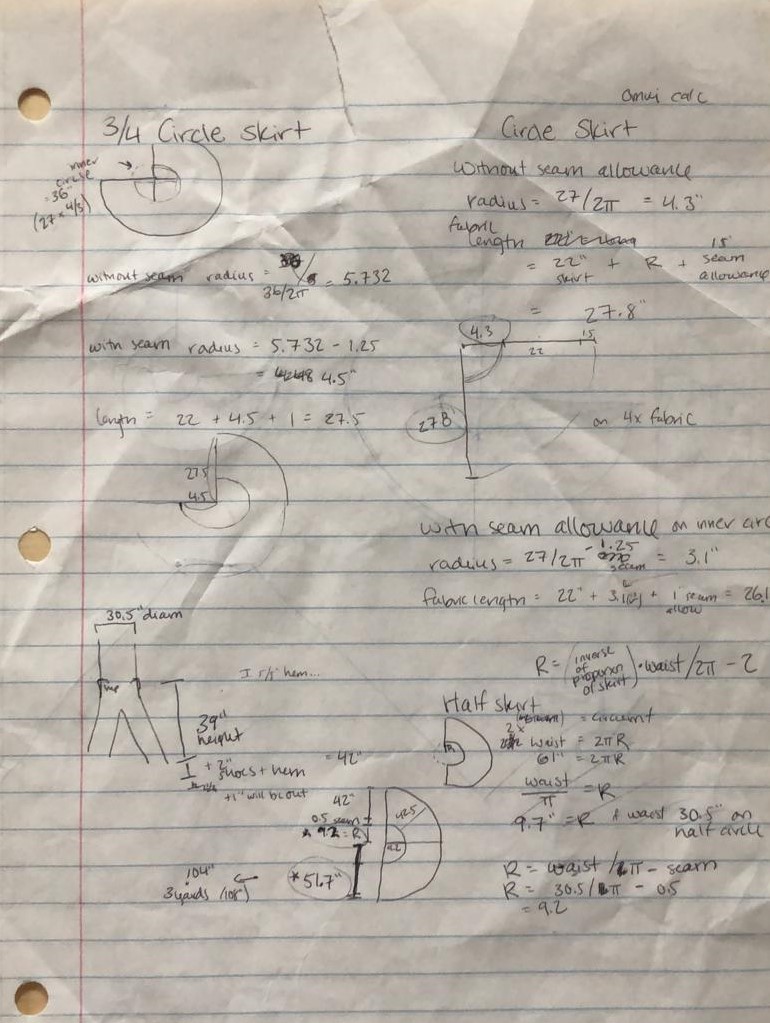 omni calc
3/4 Circle Skirt
inner
circle
= 36"
(27 x 4/3)
without seam radius =
36/2π = 5.732
with seam radius = 5.732 - 1.25
= 4.5"
length = 22 + 4.5 + 1 = 27.5
27.5
4.5
Circle Skirt
Without seam allowance
radius = 27/2π = 4.3"
fabric
length
= 22" + R + 1.5" seam allowance
skirt
= 27.8"
4.3
22
1.5
27.8
on 4x fabric
With seam allowance on inner circ
radius = 27/2π - 1.25 = 3.1"
seam
fabric length = 22" + 3.1 + 1 seam = 26.1
allow
R = (inverse of proportion of skirt) · waist/2π - 2
30.5" diam
me
39"
height
+ 2"
shoes + hem = 42"
+1" will be out
42"
0.5 seam
9.2 = R
42.5
9.2
*51.7"
104"
3 yards (108")
Half skirt
= circumf
2x
waist = 2πR
61" = 2πR
waist
π = R
9.7" = R
waist 30.5" on
half circle
R = waist/π - seam
R = 30.5/π - 0.5
= 9.2